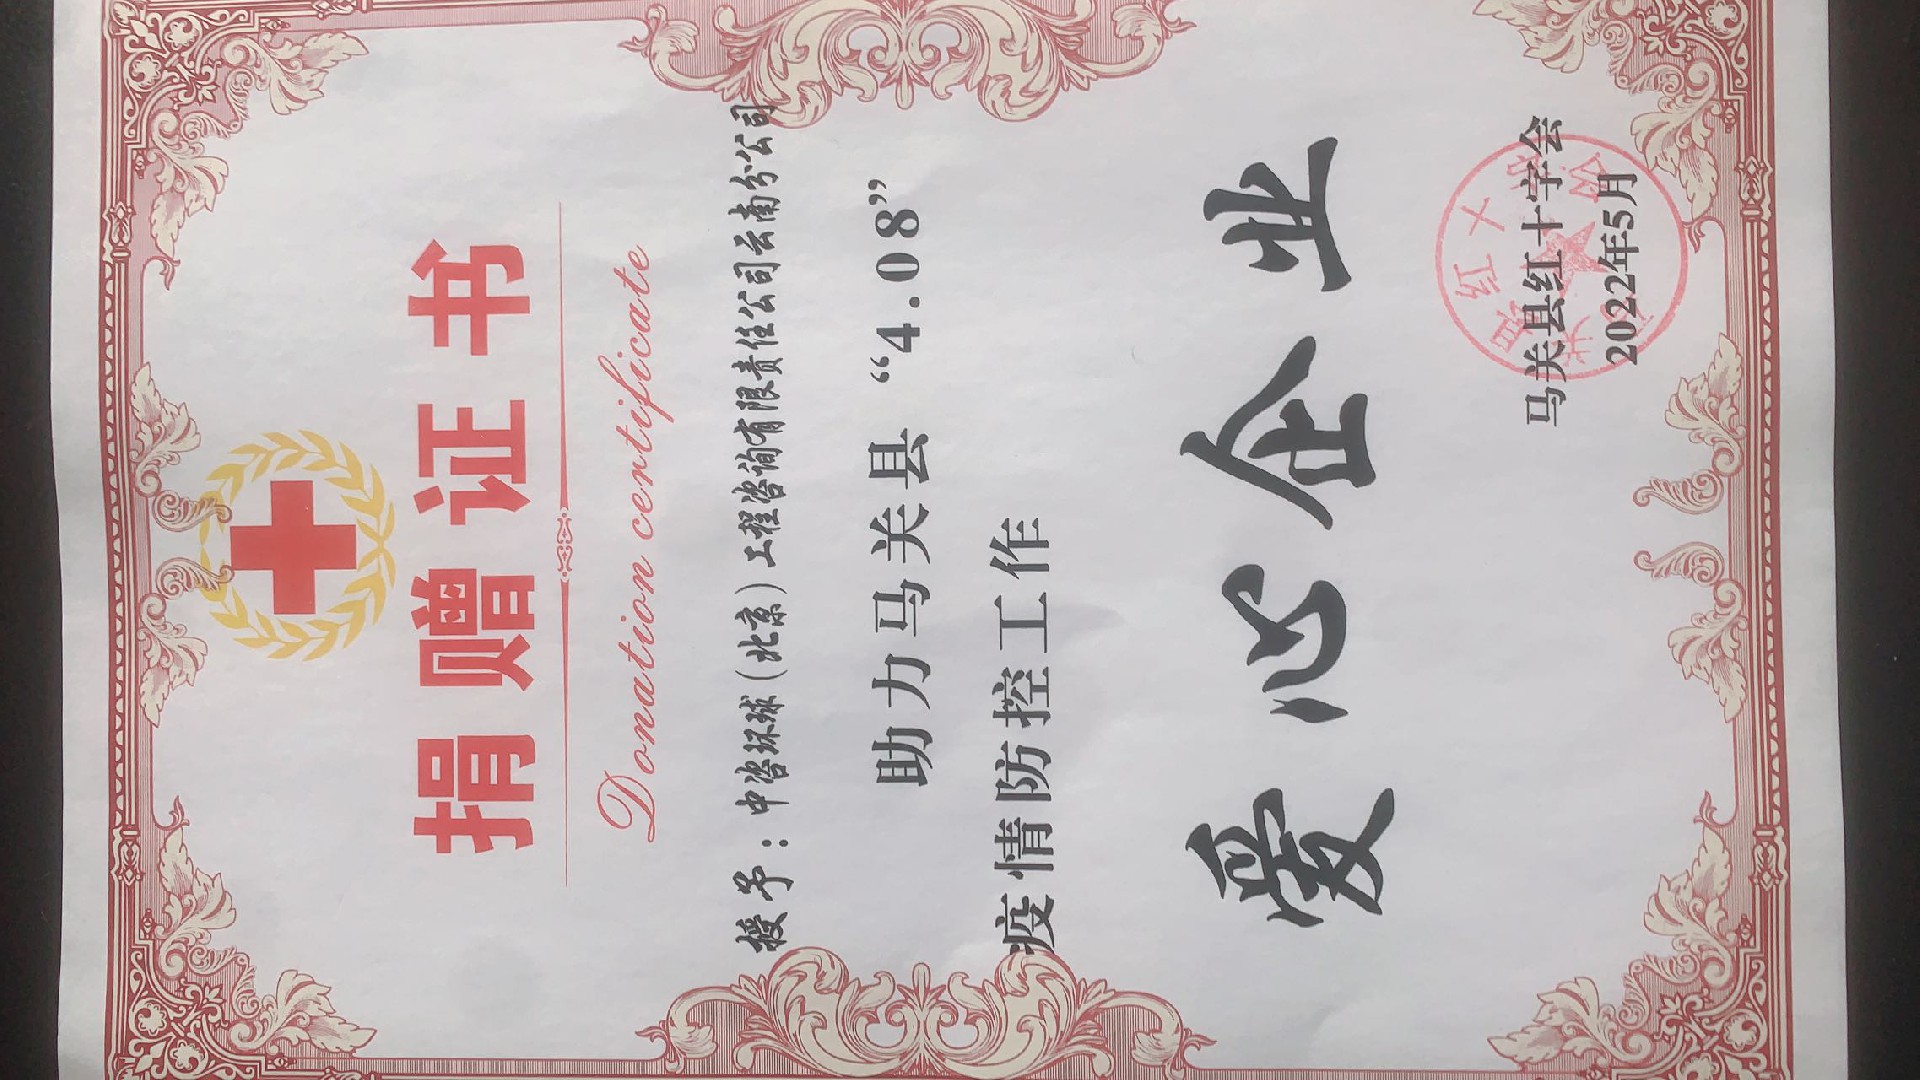 捐赠证书
Donation certificate
授予：中咨环球(北京)工程咨询有限责任公司云南分公司
助力马关县“4.08”
疫情防控工作
爱心企业
马关县红十字会
2022年5月